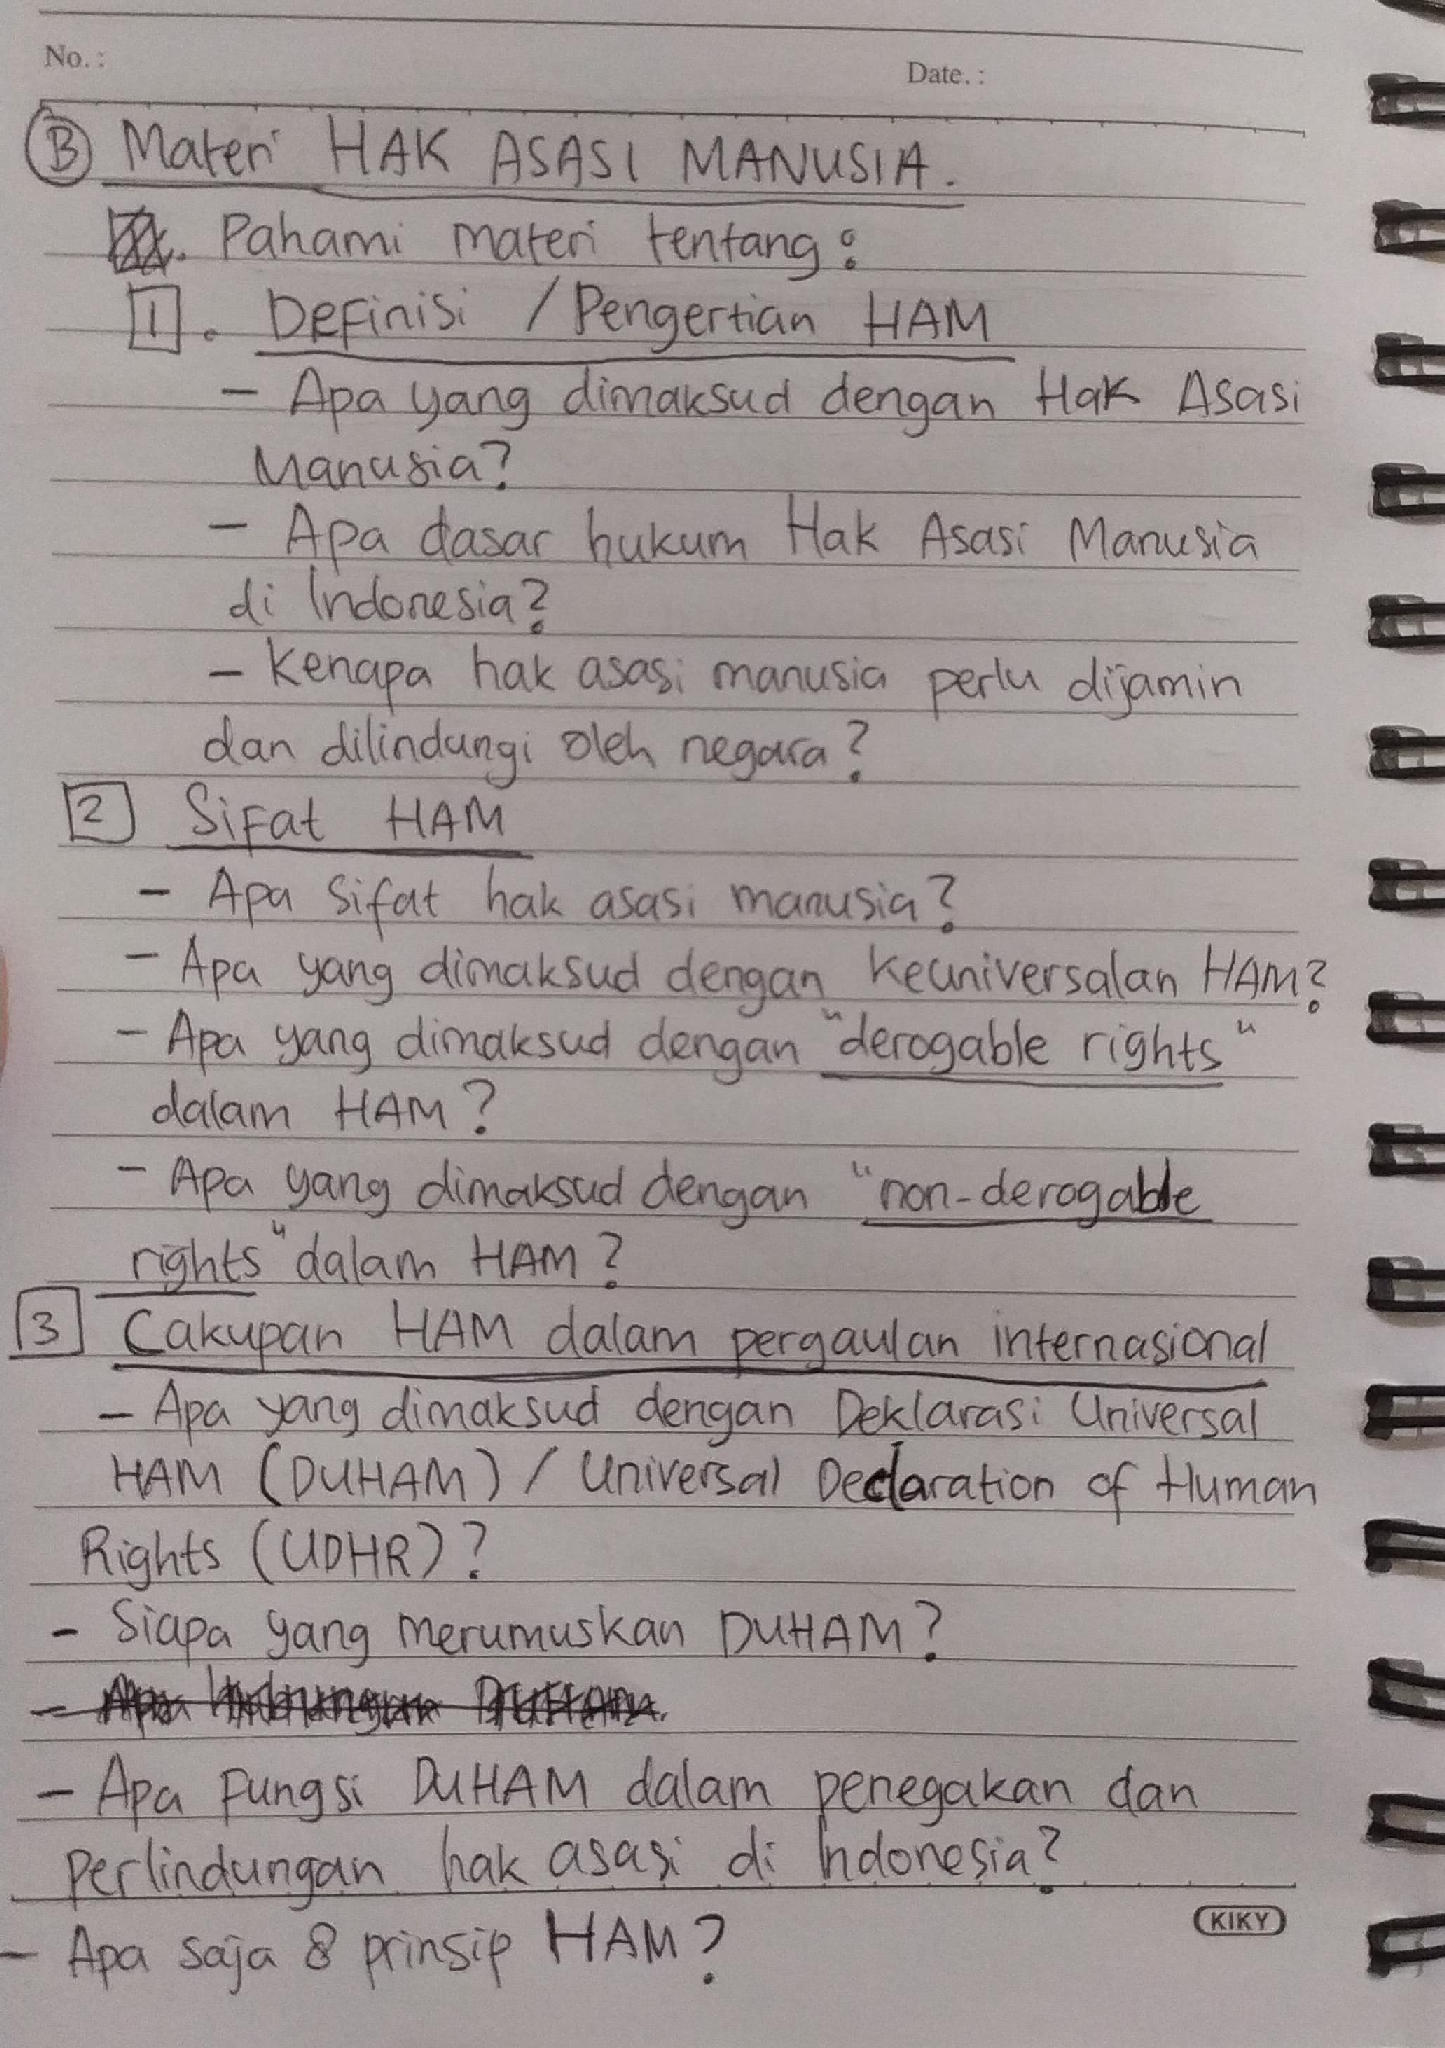 No. :
Date. :
B Materi HAK ASASI MANUSIA.
. Pahami materi tentang :
1. Definisi / Pengertian HAM
- Apa yang dimaksud dengan Hak Asasi
Manusia?
- Apa dasar hukum Hak Asasi Manusia
di Indonesia?
- Kenapa hak asasi manusia perlu dijamin
dan dilindungi oleh negara?
2 Sifat HAM
- Apa sifat hak asasi manusia?
- Apa yang dimaksud dengan keuniversalan HAM?
- Apa yang dimaksud dengan "derogable rights"
dalam HAM?
- Apa yang dimaksud dengan "non-derogable
rights" dalam HAM?
3 Cakupan HAM dalam pergaulan internasional
- Apa yang dimaksud dengan Deklarasi Universal
HAM (DUHAM) / Universal Declaration of Human
Rights (UDHR)?
- Siapa yang merumuskan DUHAM?
- Apa fungsi DUHAM dalam penegakan dan
perlindungan hak asasi di Indonesia?
- Apa saja 8 prinsip HAM?
KIKY